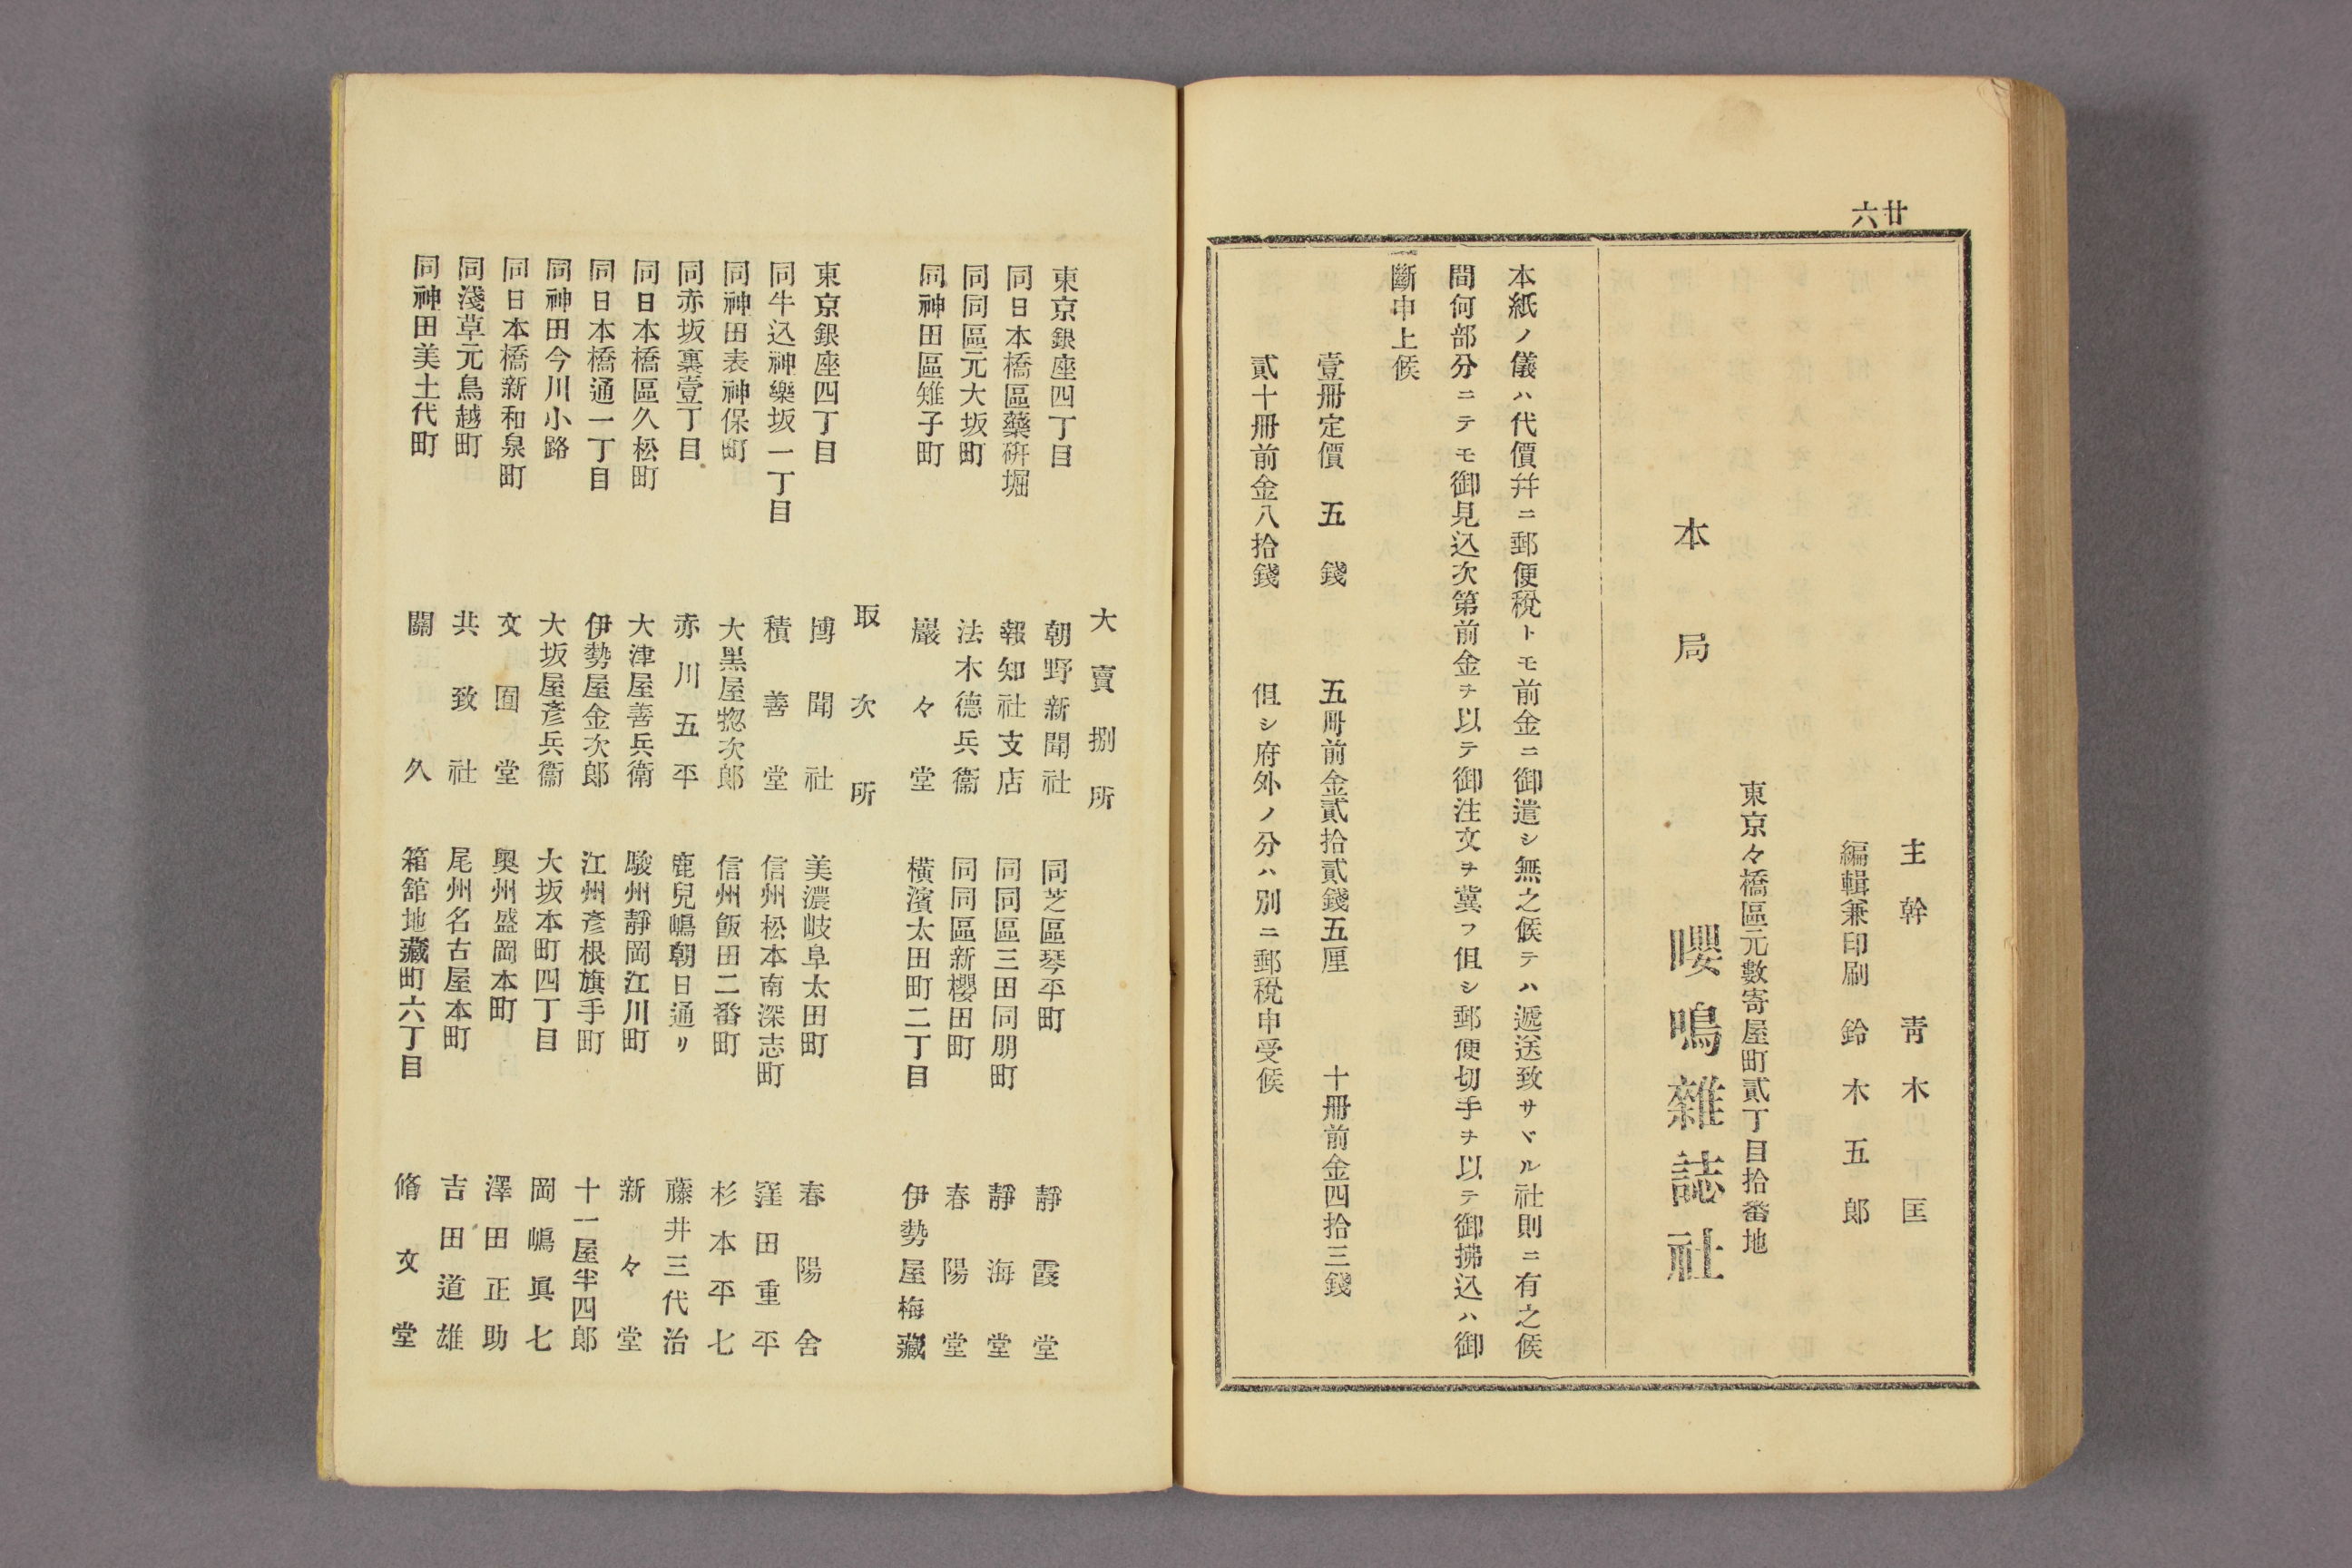 廿六
主幹　青木匡
編輯兼印刷　鈴木五郎
東京々橋區元數寄屋町貳丁目拾番地
本局　嚶鳴雜誌社
本紙ノ儀ハ代價幷ニ郵便稅トモ前金ニ御遣シ無之候テハ遞送致サヾル社則ニ有之候
間何部分ニテモ御見込次第前金ヲ以テ御注文ヲ冀フ但シ郵便切手ヲ以テ御拂込ハ御
斷申上候
壹冊定價　五錢　五冊前金貳拾貳錢五厘　十冊前金四拾三錢
貳十冊前金八拾錢　但シ府外ノ分ハ別ニ郵稅申受候
大賣捌所
東京銀座四丁目　朝野新聞社　同芝區琴平町　靜霞堂
同日本橋區藥硏堀　報知社支店　同同區三田同朋町　靜海堂
同同區元大坂町　法木德兵衞　同同區新櫻田町　春陽堂
同神田區雉子町　巖々堂　橫濱太田町二丁目　伊勢屋梅藏
取次所
東京銀座四丁目　博聞社　美濃岐阜太田町　春陽舍
同牛込神樂坂一丁目　積善堂　信州松本南深志町　窪田重平
同神田表神保町　大黑屋惣次郎　信州飯田二番町　杉本平七
同赤坂裏壹丁目　赤川五平　鹿兒嶋朝日通リ　藤井三代治
同日本橋區久松町　大津屋善兵衛　駿州靜岡江川町　新々堂
同日本橋通一丁目　伊勢屋金次郎　江州彥根旗手町　十一屋半四郎
同神田今川小路　大坂屋彥兵衞　大坂本町四丁目　岡嶋眞七
同日本橋新和泉町　文囿堂　奧州盛岡本町　澤田正助
同淺草元鳥越町　共致社　尾州名古屋本町　吉田道雄
同神田美土代町　關久　箱舘地藏町六丁目　脩文堂